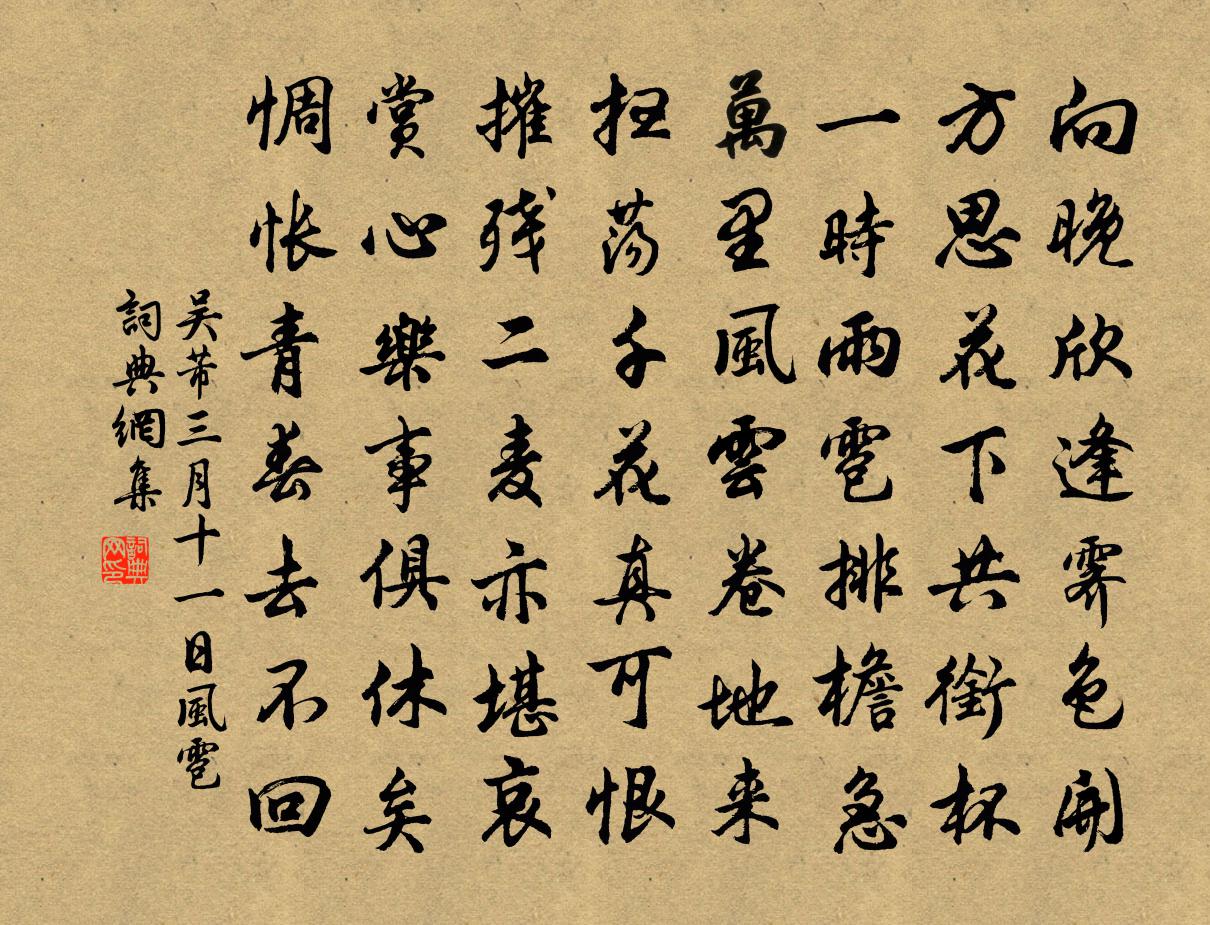 向晚欣逢霽色開
方思花下共銜杯
一時雨雹排檐急
萬里風雲卷地来
扫蕩千花真可恨
摧残二麦亦堪哀
賞心樂事俱休矣
惆怅青春去不回
吴芾三月十一日風雹
詞典網集
詞典网印